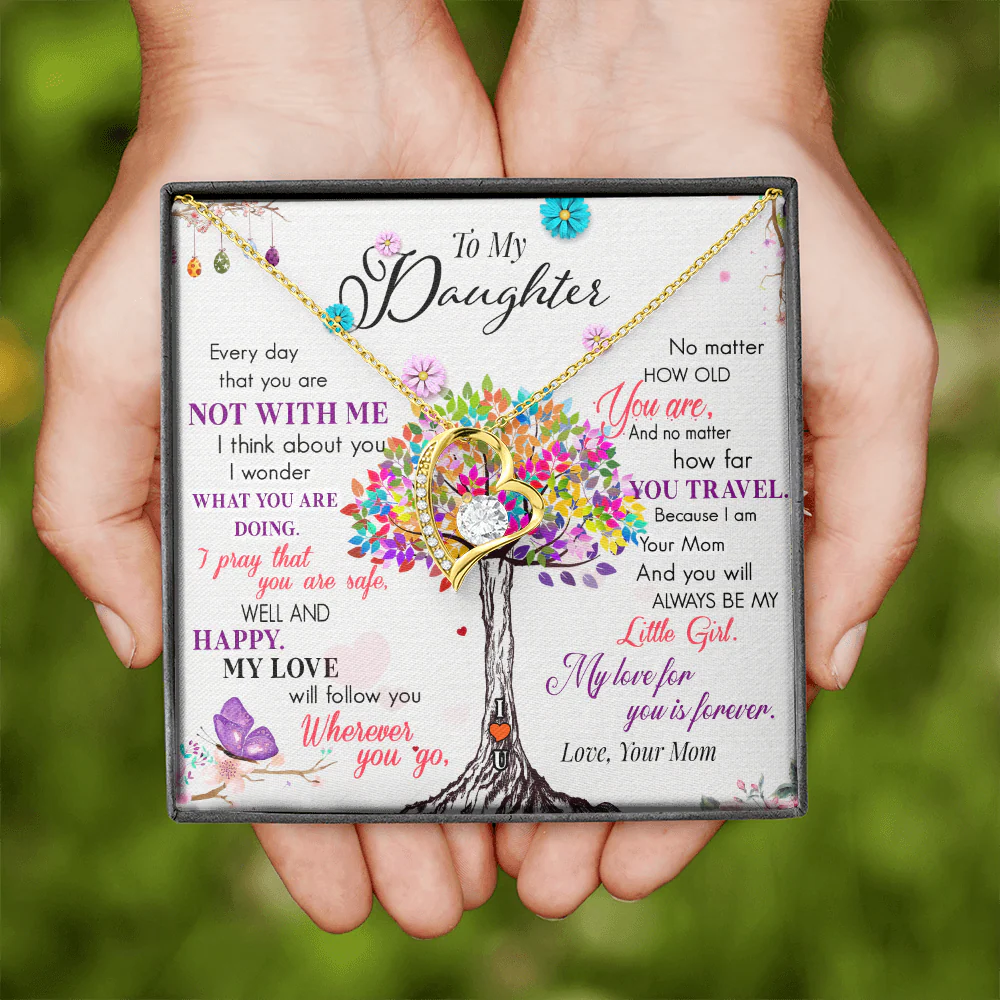 To My
Daughter
Every day
that you are
NOT WITH ME
I think about you
I wonder
WHAT YOU ARE
DOING.
I pray that
you are safe,
WELL AND
HAPPY.
MY LOVE
will follow you
Wherever
you go,
No matter
HOW OLD
You are,
And no matter
how far
YOU TRAVEL.
Because I am
Your Mom
And you will
ALWAYS BE MY
Little Girl.
My love for
you is forever.
Love, Your Mom
I
U